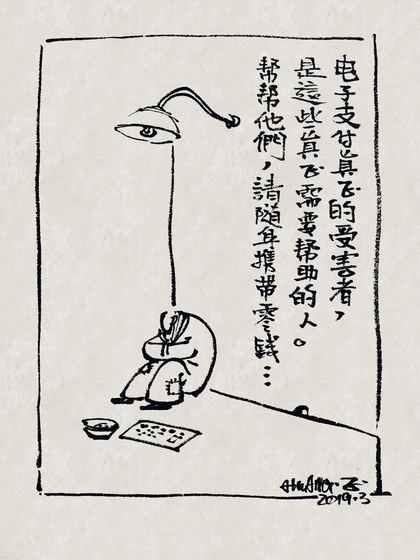 电子支付真正的受害者，
是這些真正需要帮助的人。
帮帮他們，請随身携带零錢…
2019.3